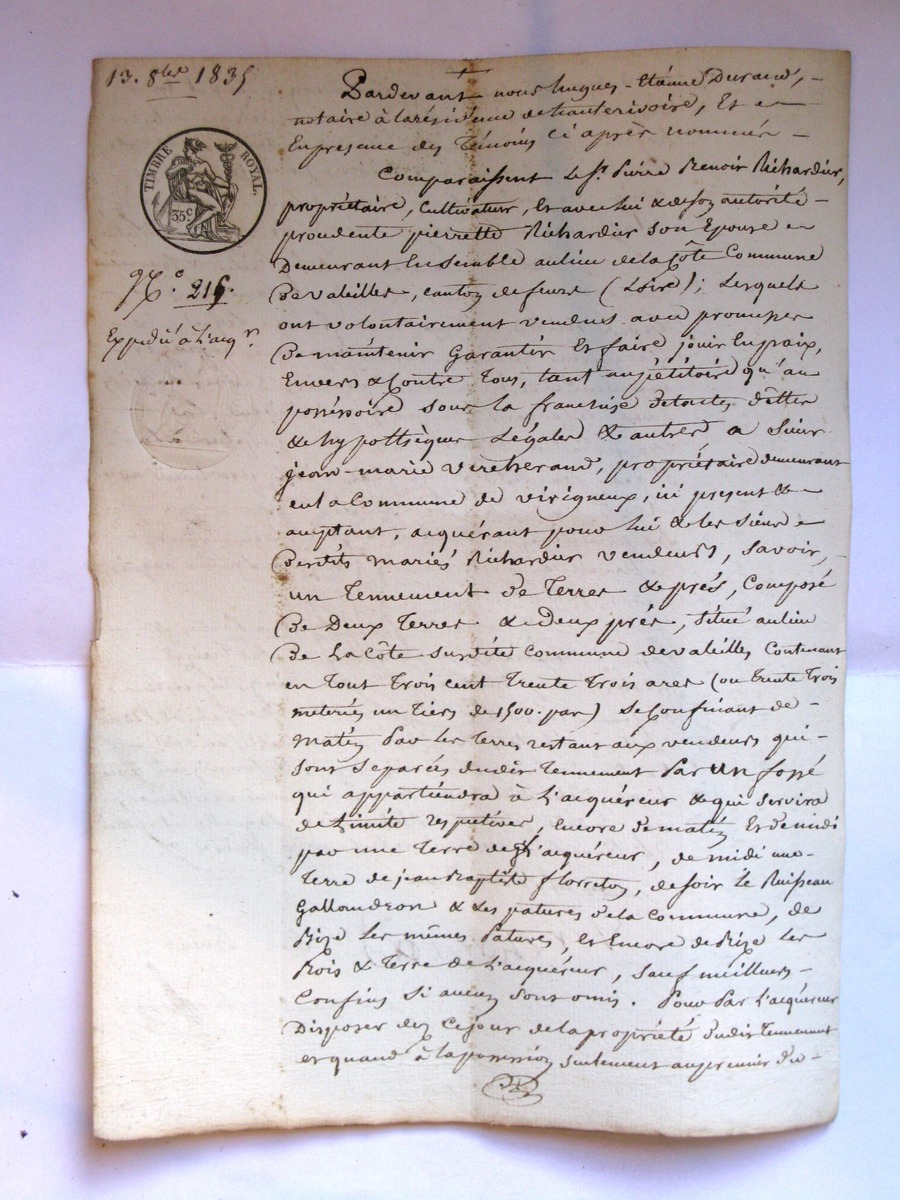 13. 8bre 1835
TIMBRE ROYAL.
35c
N.° 215.
Expédié à l'acqr
Pardevant nous hugues-Etienne Durand,
notaire à la résidence de hauterivoire, Et
En presence des Témoins ci après nommés
Comparaissent le Sr. Pierre Benoit Richardier,
propriétaire, Cultivateur, Et avec lui & de son autorité
procédante pierrette Richardier son Epouse
Demeurant Ensemble au lieu de la Côte Commune
De valeilles, canton de feurs (Loire); Lesquels
ont volontairement vendus avec promesse
De maintenir Garantir Et faire jouir En paix,
Envers & Contre Tous, tant au pétitoire qu'au
possessoire sous la franchise de toutes dettes
& hypothèques Légales & autres a Sieur
jean-marie vercherand, propriétaire demeurant
en la Commune de virigneux, ici present &
acceptant, acquérant pour lui & les siens
Desdits mariés Richardier vendeurs, savoir,
un Tennement de Terres & prés, Composé
De Deux Terres & deux prés, situé au lieu
De la Côte susdite Commune de valeilles Contenant
en Tout Trois cent Trente Trois ares (ou trente Trois
meterées un Tiers de 1500. pas) Se Confinant de
matin Par les Terres restant aux vendeurs qui
sont séparées dudit Tennement Par un fossé
qui appartiendra à l'acquéreur & qui servira
de Limite respectives, Encore de matin Et de midi
par une Terre de l'acquéreur, de midi une
Terre de jean Baptiste florreton, de soir le Ruisseau
Gallondron & les patures de la Commune, de
Bize les mêmes Patures, et Encore de Bize les
Bois & Terre de l'acquéreur, Sauf meilleurs
Confins Si aucuns Sont omis. Pour Par l'acquéreur
Disposer dez ce jour de la propriété dudit Tennement
et quand à la possession seulement au premier du